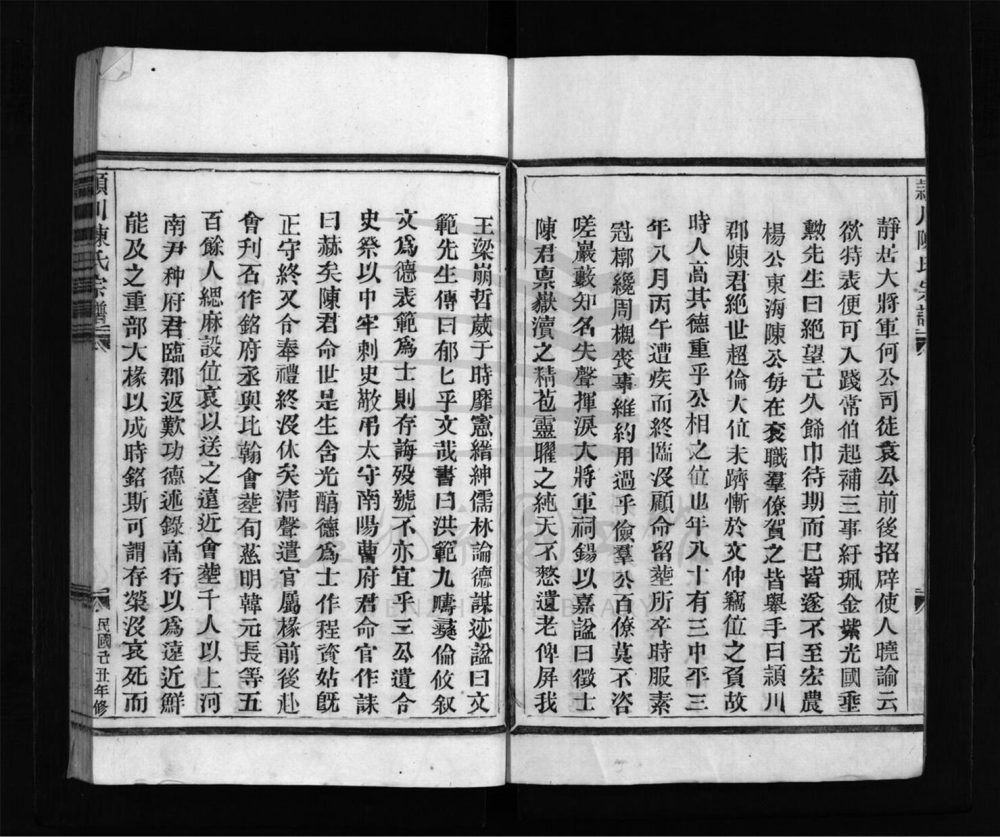 頴川陳氏宗譜
靜居大將軍何公司徒袁公前後招辟使人曉諭云
欲特表便可入踐常伯起補三事紆珮金紫光國垂
勲先生曰絕望已久飾巾待期而已皆遂不至宏農
楊公東海陳公每在袞職羣僚賀之皆舉手曰頴川
郡陳君絕世超倫大位未躋慚於文仲竊位之負故
時人高其德重乎公相之位也年八十有三中平三
年八月丙午遭疾而終臨沒顧命留塟所卒時服素
冠槨纔周櫬喪事維約用過乎儉羣公百僚莫不咨
嗟巖藪知名失聲揮淚大將軍祠錫以嘉諡曰徵士
陳君稟嶽瀆之精苞靈曜之純天不憗遺老俾屏我
王梁崩哲蕆于時靡憲縉紳儒林論德謀迹諡曰文
範先生傳曰郁匕乎文哉書曰洪範九疇彝倫攸叙
文爲德表範爲士則存誨歿號不亦宜乎三公遺合
史祭以中牢刺史敬弔太守南陽曹府君命官作誄
曰赫矣陳君命世是生含光醕德爲士作程資始旣
正守終又令奉禮終沒休矣清聲遣官屬掾前後赴
會刋石作銘府丞與比翰會塟荀慈明韓元長等五
百餘人緦麻設位哀以送之遠近會塟千人以上河
南尹种府君臨郡返歎功德述錄高行以爲遠近鮮
能及之重部大掾以成時銘斯可謂存榮沒哀死而
頴川陳氏宗譜
民國丑年修